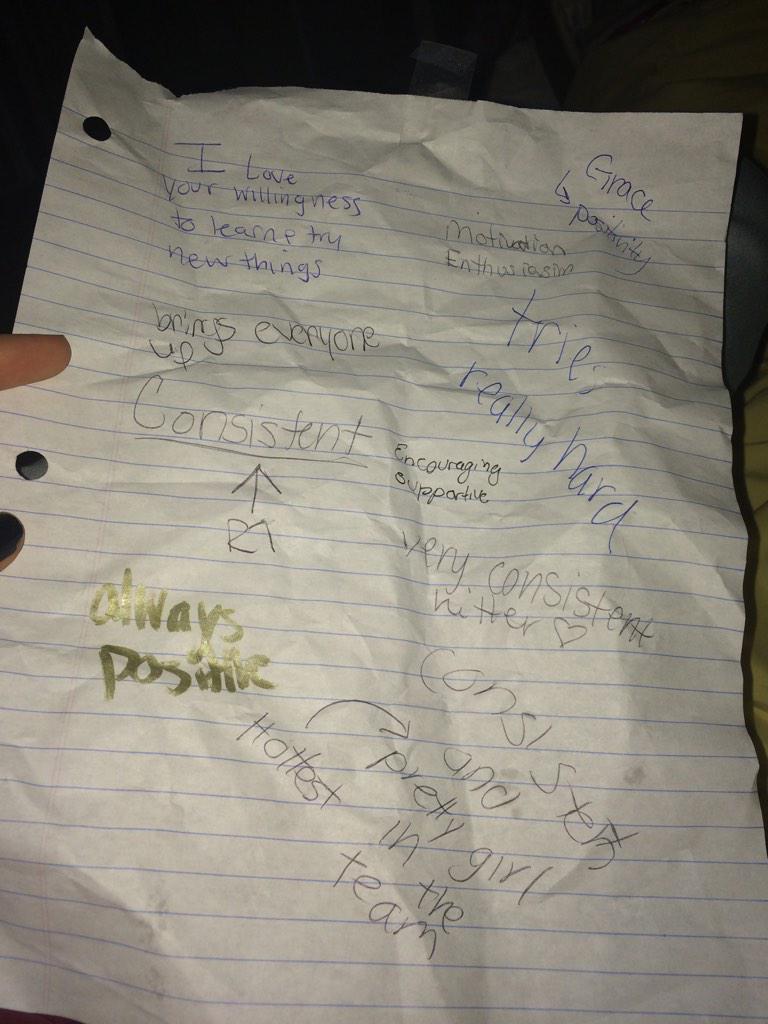 I Love
your willingness
to learn & try
new things
Grace
↳ positivity
Motivation
Enthusiasm
brings everyone
up
tries
really hard
Consistent
↑
Encouraging
supportive
very consistent
hitter ♡
always
positive
Consistent
and
Hottest
pretty girl
in the
team